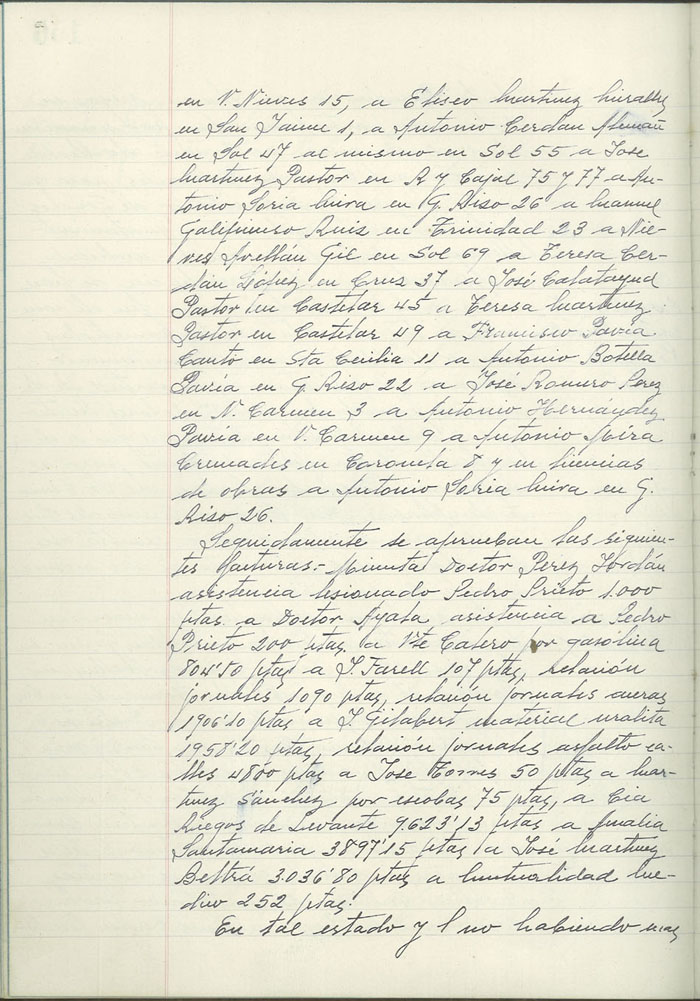 en V. Nieves 15, a Eliseo Martinez Miralles
en San Jaime 1, a Antonio Cerdan Alemañ
en Sol 47 al mismo en Sol 55 a Jose
Martinez Pastor en R y Cajal 75 y 77 a An-
tonio Soria Mira en G. Riso 26 a Manuel
Galipienso Ruiz en Trinidad 23 a Nie-
ves Avellán Gil en Sol 69 a Teresa Cer-
dán López en Cruz 37 a José Calatayud
Pastor en Castelar 45 a Teresa Martinez
Pastor en Castelar 49 a Francisco Pavia
Cantó en Sta Cecilia 11 a Antonio Botella
Pavía en G. Riso 22 a Jose Romero Perez
en N. Carmen 3 a Antonio Hernández
Pavia en V. Carmen 9 a Antonio Mira
Cremades en Coroneta 8 y en licencias
de obras a Antonio Soria Mira en G.
Riso 26.
Seguidamente se aprueban las siguien-
tes facturas:- Minuta Doctor Pérez Jordán
asistencia lesionado Pedro Prieto 1.000
ptas. a Doctor Ayala asistencia a Pedro
Prieto 200 ptas, a Vte Calero por gasolina
804'50 ptas a J. Farell 107 ptas, relación
jornales 1090 ptas, relación jornales aceras
1906'10 ptas a J. Gilabert material uralita
1958'20 ptas, relación jornales asfalto ca-
lles 4800 ptas a Jose Torres 50 ptas a Mar-
tinez Sánchez por escobas 75 ptas, a Cia
Riegos de Levante 9.623'13 ptas a Amalia
Santamaria 3897'15 ptas a José Martinez
Beltrá 3.036'80 ptas a Mutualidad Me-
dico 252 ptas.
En tal estado y no habiendo mas